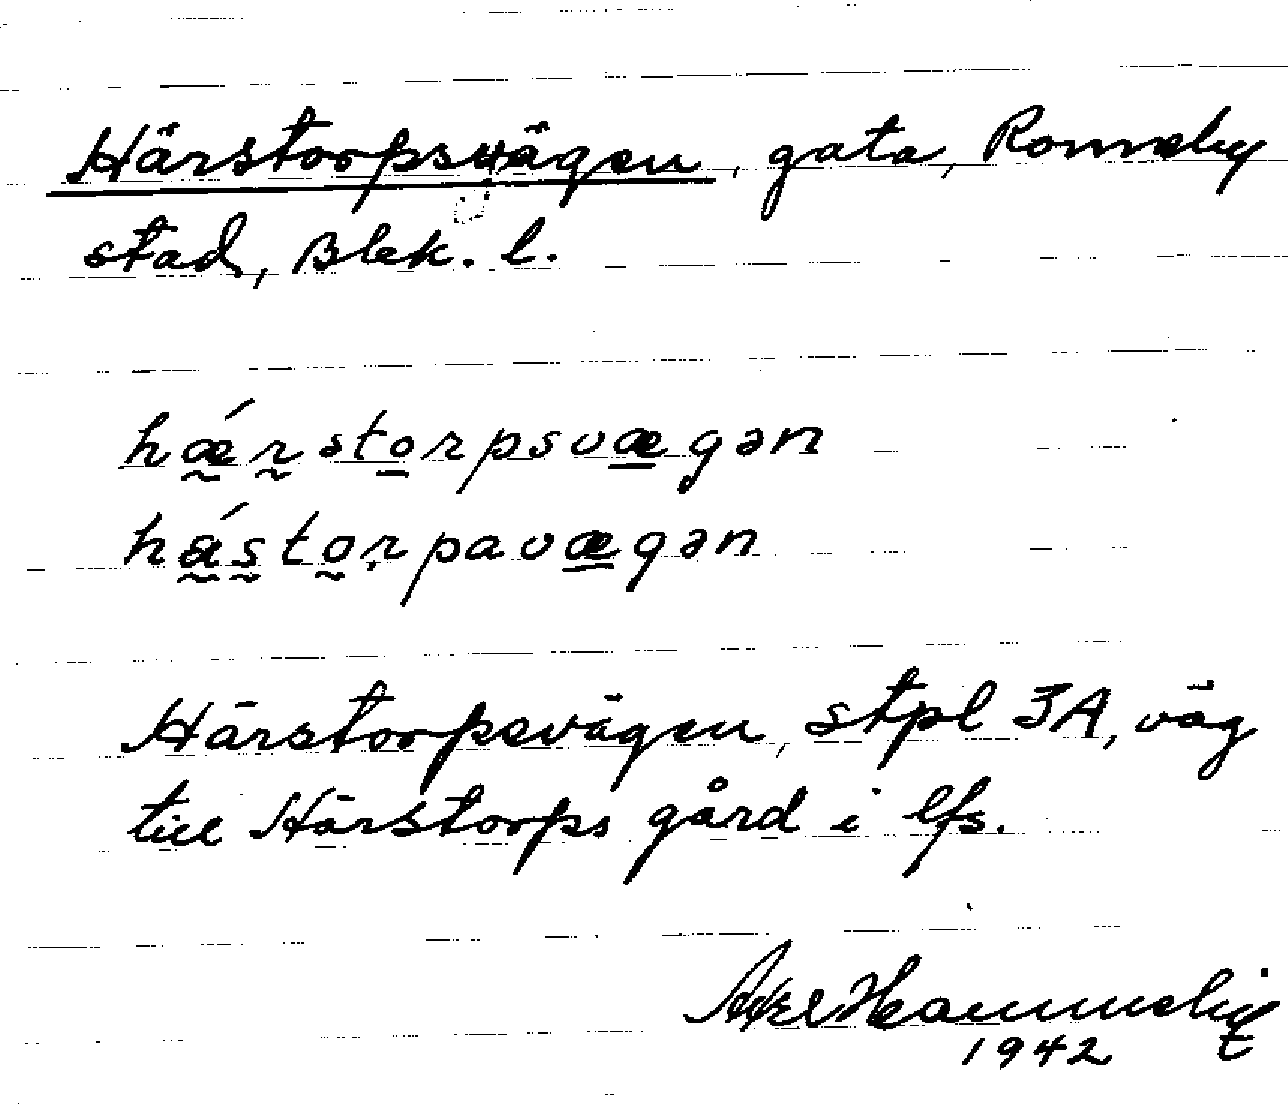 Härstorpsvägen, gata, Ronneby
stad, Blek. l.
hǽrstorpsvægən
hǽstorpavægən
Härstorpsvägen, stpl 3A, väg
till Härstorps gård i lfs.
Axel
1942